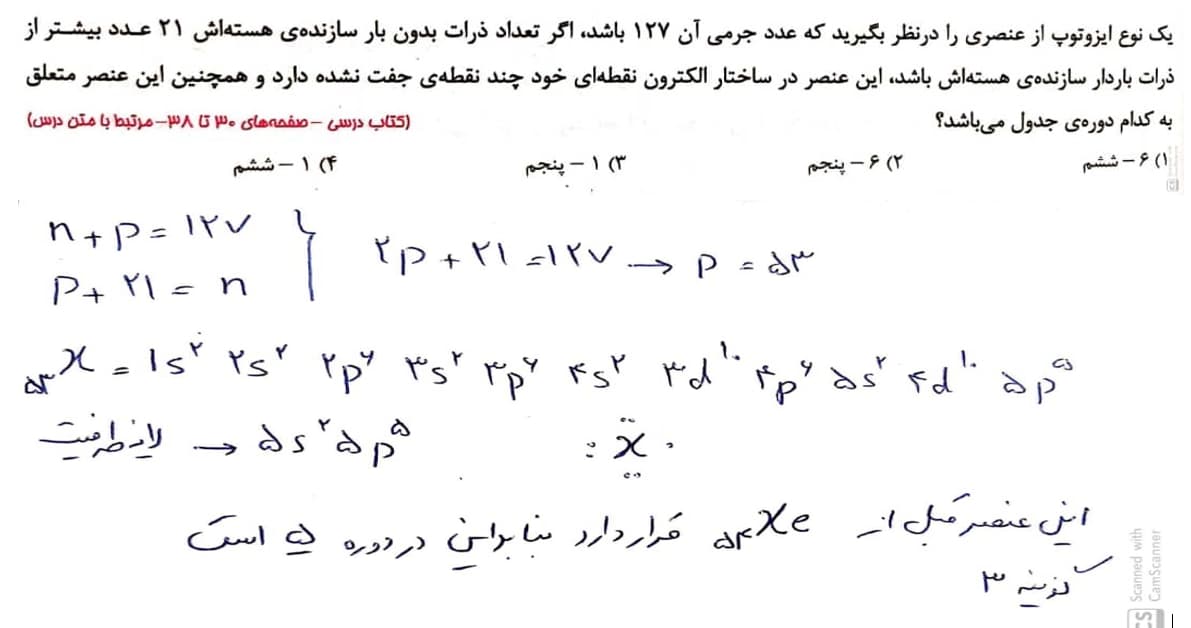 یک نوع ایزوتوپ از عنصری را درنظر بگیرید که عدد جرمی آن ۱۲۷ باشد، اگر تعداد ذرات بدون بار سازنده‌ی هسته‌اش ۲۱ عـدد بیشـتر از
ذرات باردار سازنده‌ی هسته‌اش باشد، این عنصر در ساختار الکترون نقطه‌ای خود چند نقطه‌ی جفت نشده دارد و همچنین این عنصر متعلق
به کدام دوره‌ی جدول می‌باشد؟ (کتاب درسی –صفحه‌های ۳۰ تا ۳۸–مرتبط با متن درس)
۱) ۶ – ششم ۲) ۶ – پنجم ۳) ۱ – پنجم ۴) ۱ – ششم
n + p = ۱۲۷
p + ۲۱ = n } ۲p + ۲۱ = ۱۲۷ → p = ۵۳
₅₃X = ۱s² ۲s² ۲p⁶ ۳s² ۳p⁶ ۴s² ۳d¹⁰ ۴p⁶ ۵s² ۴d¹⁰ ۵p⁵
لایه ظرفیت → ۵s² ۵p⁵ : Ẍ ·
این عنصر قبل از ₅₄Xe قرار دارد بنابراین در دوره ۵ است
گزینه ۳
Scanned with
CamScanner
CS